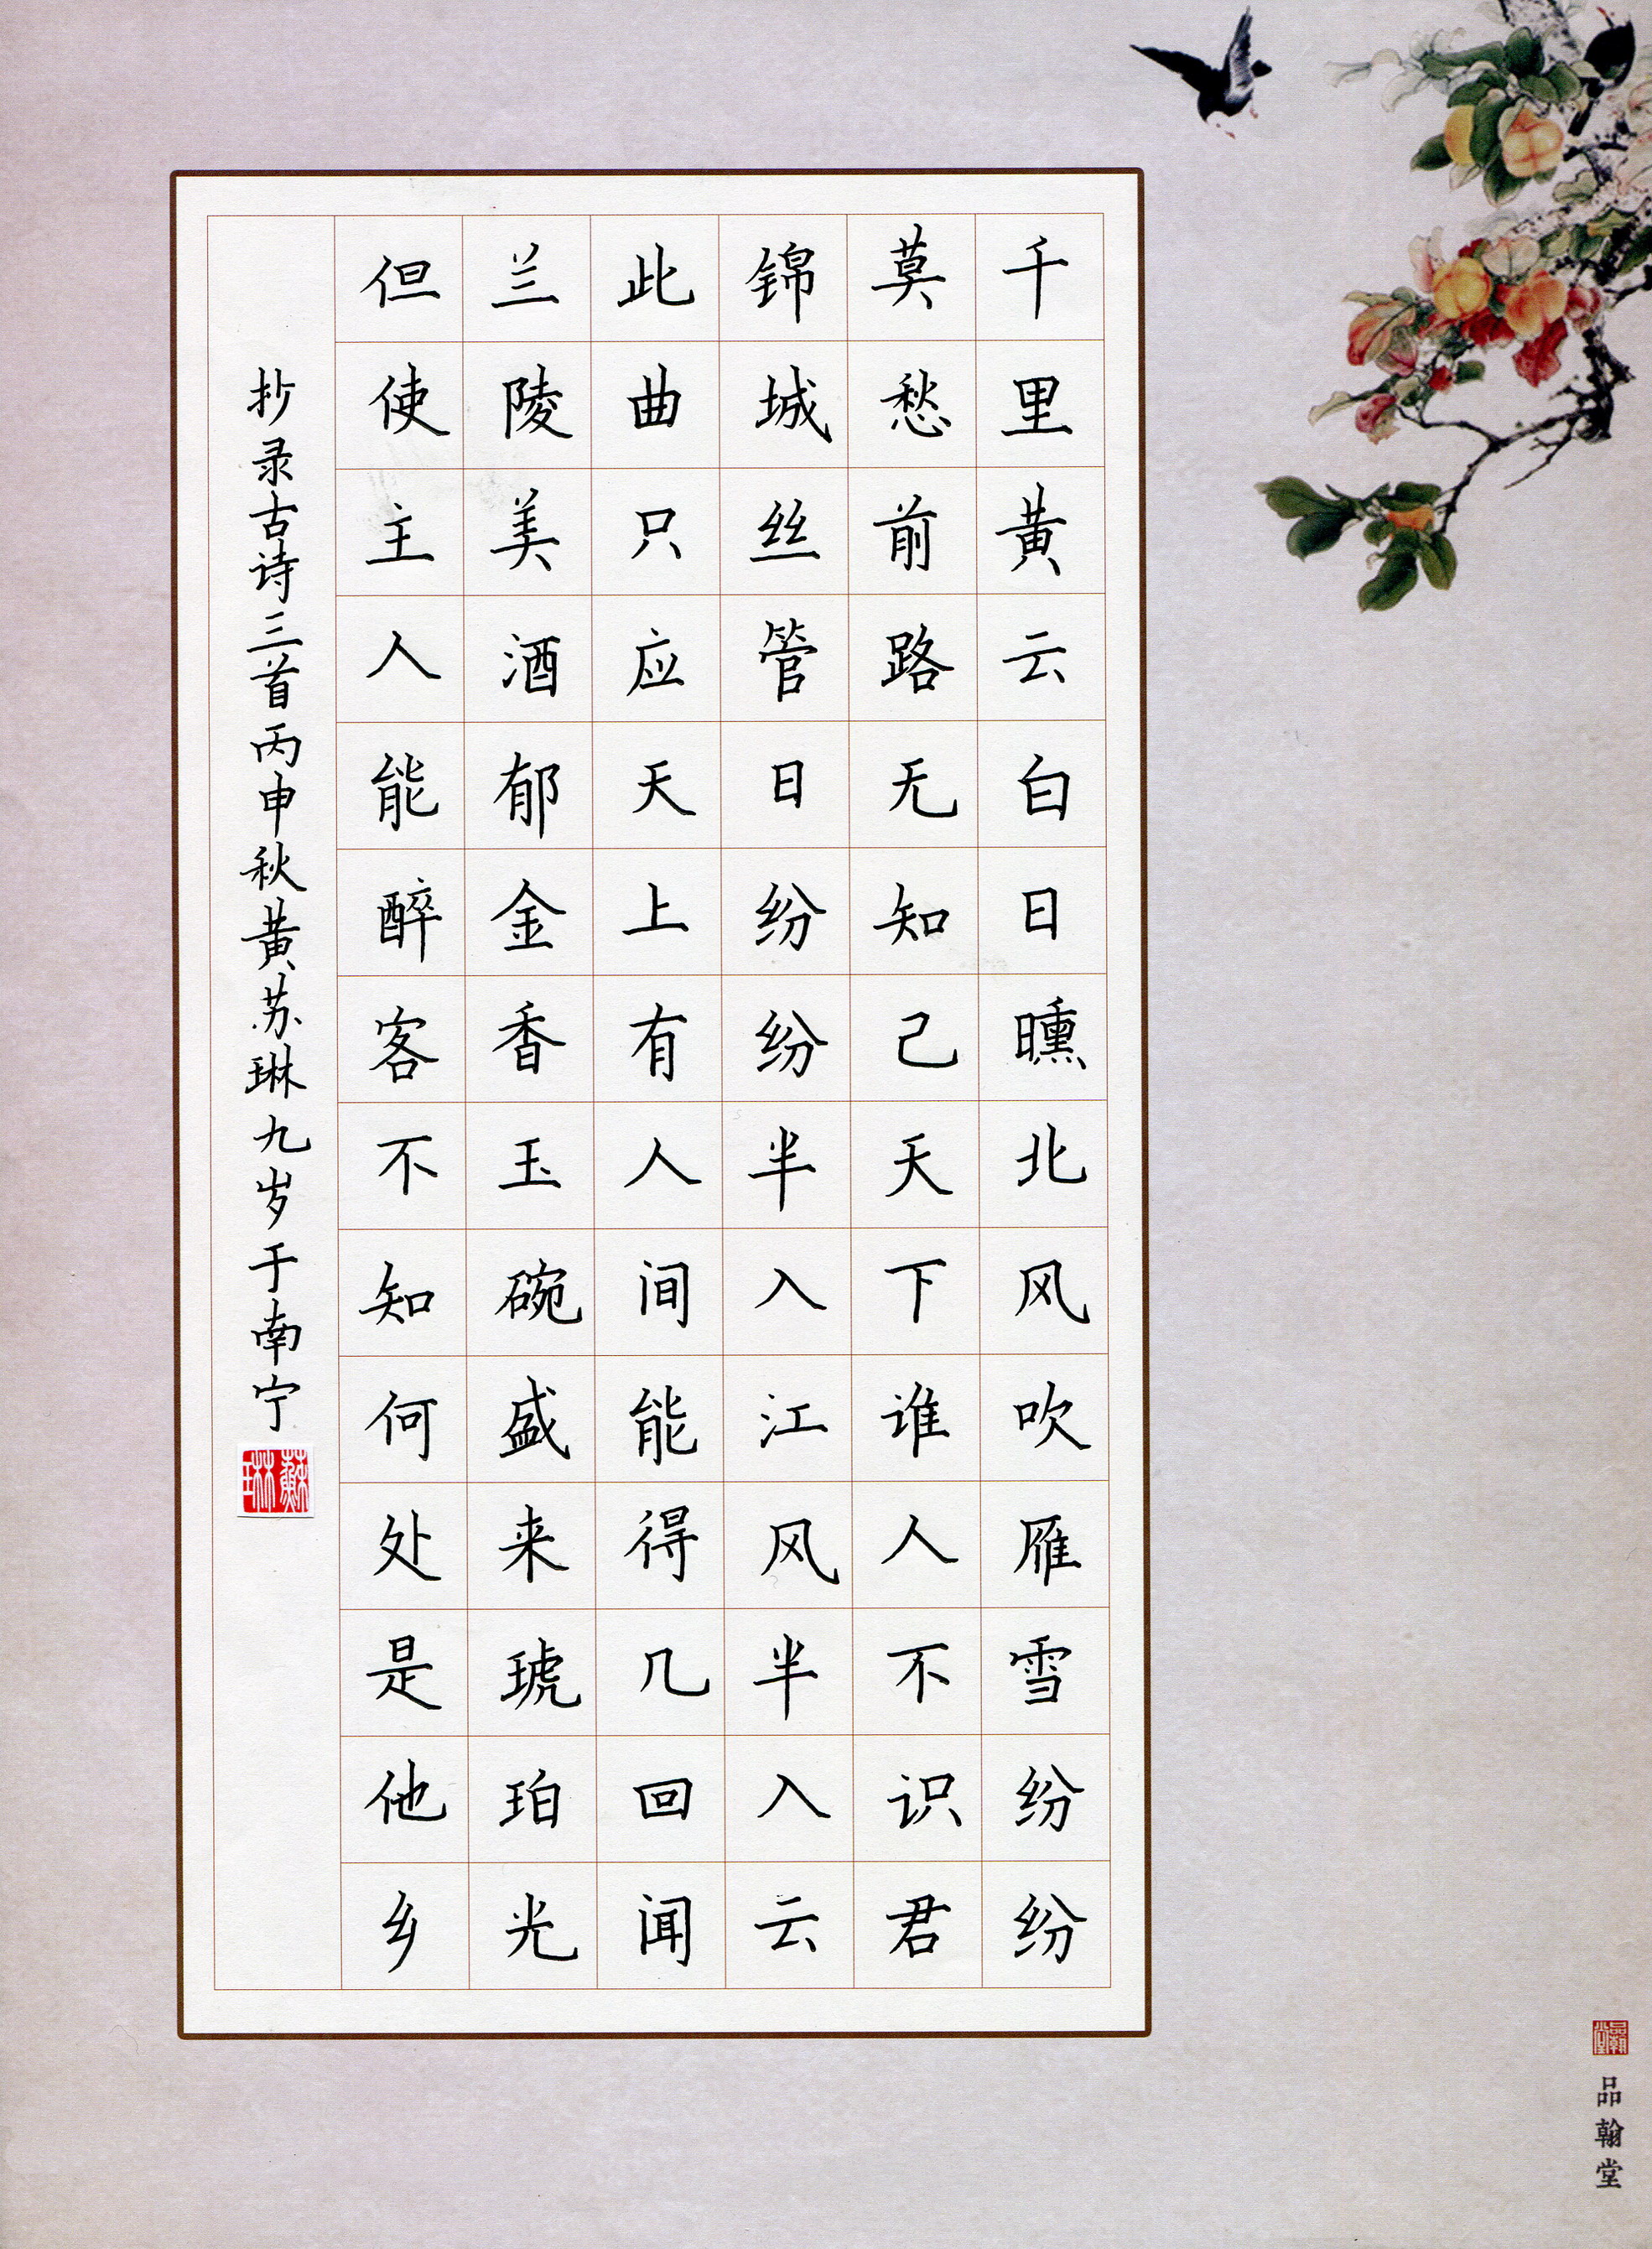 千里黄云白日曛北风吹雁雪纷纷
莫愁前路无知己天下谁人不识君
锦城丝管日纷纷半入江风半入云
此曲只应天上有人间能得几回闻
兰陵美酒郁金香玉碗盛来琥珀光
但使主人能醉客不知何处是他乡
抄录古诗三首丙申秋黄苏琳九岁于南宁
蘇琳
品翰堂
品翰堂